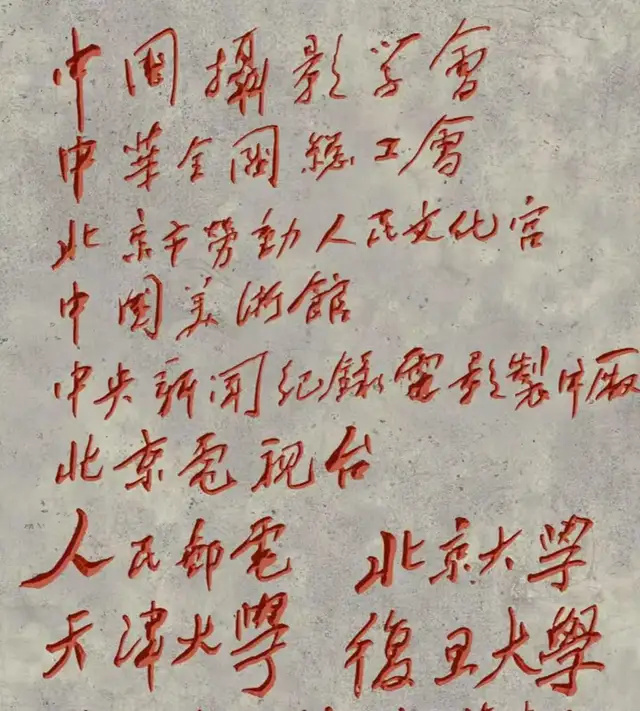 中国攝影学會
中华全國總工會
北京市劳動人民文化宮
中國美術館
中央新闻纪録電影製片厰
北京電視台
人民邮電 北京大学
天津大學 復旦大學